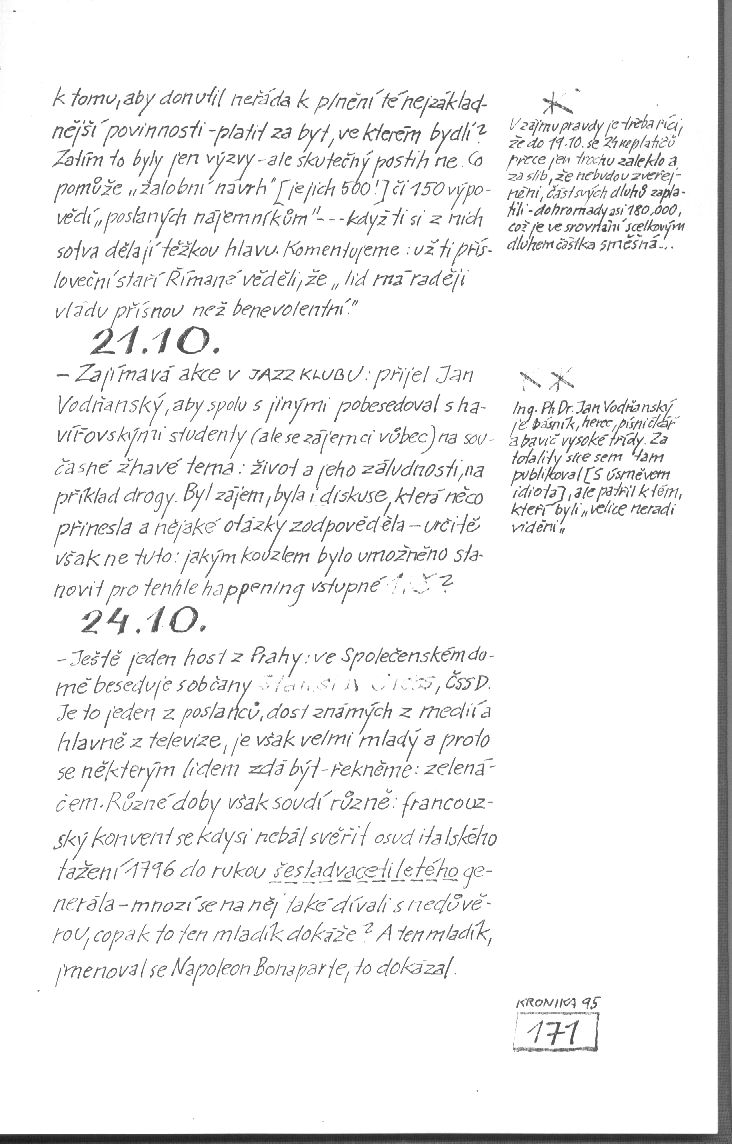 k tomu, aby donutil neřáda k plnění té nejzáklad-
nější povinnosti - platit za byt, ve kterém bydlí?
Zatím to byly jen výzvy - ale skutečný postih ne. Co
pomůže „žalobní návrh" [je jich 500!] či 150 výpo-
vědí „poslaných nájemníkům" --- když ti si z nich
sotva dělají těžkou hlavu. Komentujeme: už ti přís-
loveční staří Římané věděli, že „lid má raději
vládu přísnou než benevolentní."
21.10.
- Zajímavá akce v JAZZ KLUBU: přijel Jan
Vodňanský, aby spolu s jinými pobesedoval s ha-
vířovskými studenty (ale se zájemci vůbec) na sou-
časné žhavé téma: život a jeho záludnosti, na
příklad drogy. Byl zájem, byla i diskuse, která něco
přinesla a nějaké otázky zodpověděla - určitě
však ne tuto: jakým kouzlem bylo umožněno sta-
novit pro tenhle happening vstupné ?
24.10.
- Ještě jeden host z Prahy: ve Společenském do-
mě beseduje s občany , ČSSD.
Je to jeden z poslanců, dost známých z medií a
hlavně z televize, je však velmi mladý a proto
se některým lidem zdá být - řekněme: zelená-
čem. Různé doby však soudí různě: francouz-
ský konvent se kdysi nebál svěřit osud italského
tažení 1796 do rukou šestadvacetiletého ge-
nerála - mnozí se na něj také dívali s nedůvě-
rou, copak to ten mladík dokáže? A ten mladík,
jmenoval se Napoleon Bonaparte, to dokázal.
V zájmu pravdy je třeba říci,
že do 19.10. se 24 neplatičů
přece jen trochu zaleklo a
za slib, že nebudou zveřej-
něni, část svých dluhů zapla-
tili - dohromady asi 180,000,
což je ve srovnání s celkovým
dluhem částka směšná...
Ing. PhDr. Jan Vodňanský
je básník, herec, písničkář
a bavič vysoké třídy. Za
totality sice sem tam
publikoval [S úsměvem
idiota], ale patřil k těm,
kteří byli „velice neradi
viděni"
KRONIKA 95
171